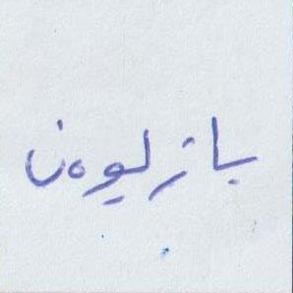 بازلیوەن